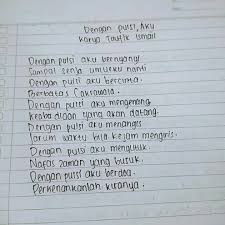 Dengan puisi, Aku
Karya Taufik Ismail
Dengan puisi aku bernyanyi
Sampai senja umurku nanti
Dengan puisi aku bercinta.
Berbatas Cakrawala.
Dengan puisi aku mengenang
Keabadiaan yang akan datang.
Dengan puisi aku menangis
Jarum waktu bila kejam mengiris.
Dengan puisi aku mengutuk.
Nafas zaman yang busuk.
Dengan puisi aku berdoa.
Perkenankanlah kiranya.